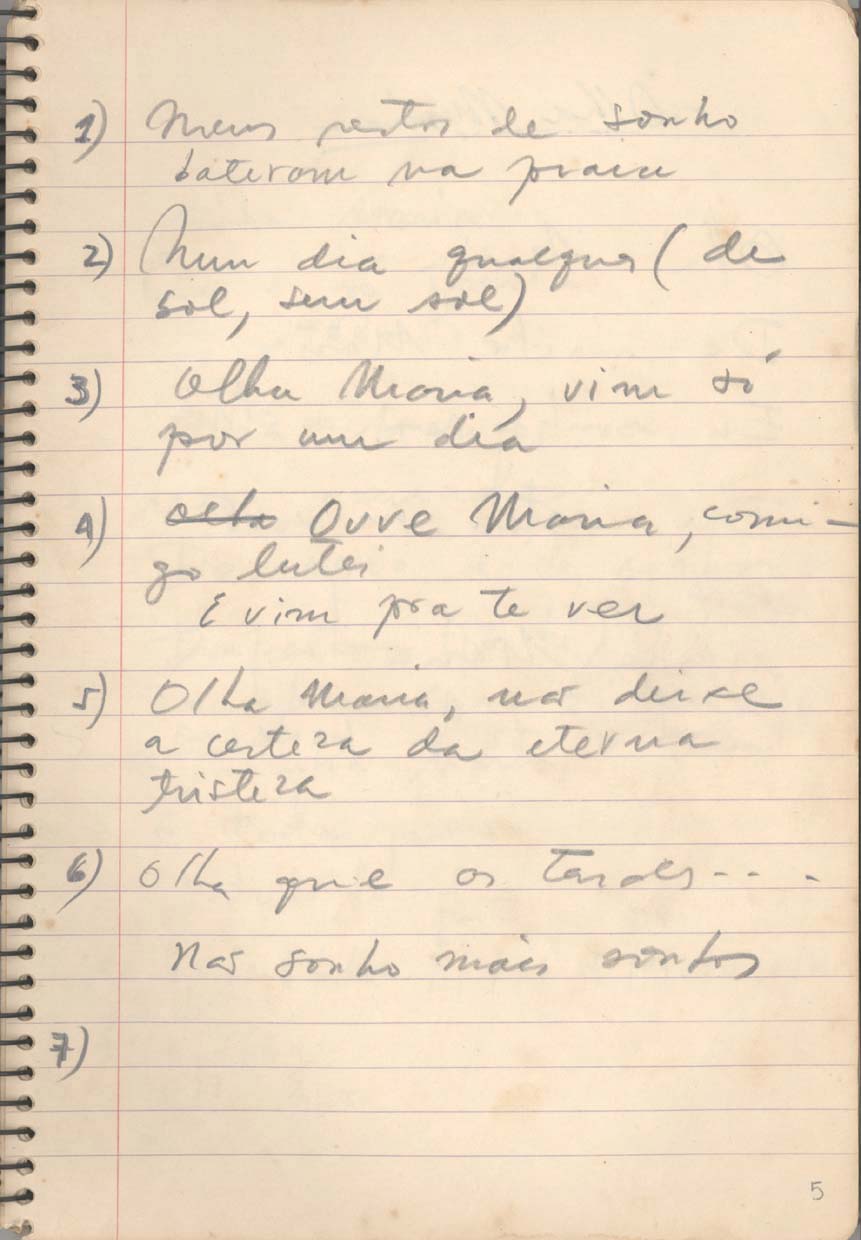 1) Meus restos de sonho
bateram na praia
2) Num dia qualquer (de
sol, sem sol)
3) Olha Maria, vim só
por um dia
4) Olha Ouve Maria, comi-
go lutei
E vim pra te ver
5) Olha Maria, não deixe
a certeza da eterna
tristeza
6) Olha que as tardes - - -
Não sonho mais sonhos
7)
5